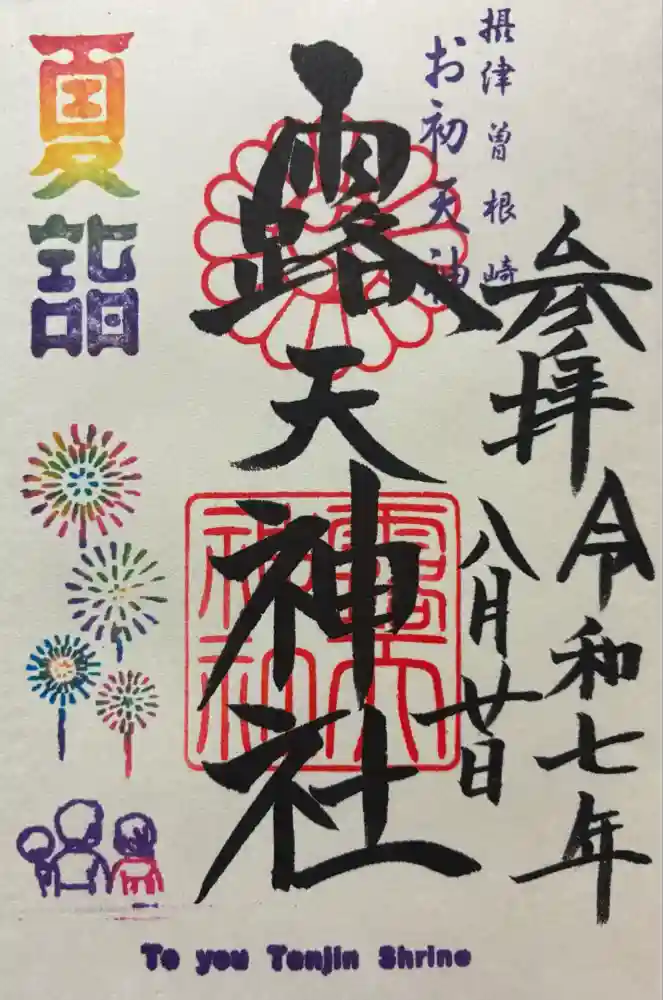 摂津曽根崎
お初天神
参拝 令和七年
八月廿日
露天神社
露天
神社
夏詣
To you Tenjin Shrine